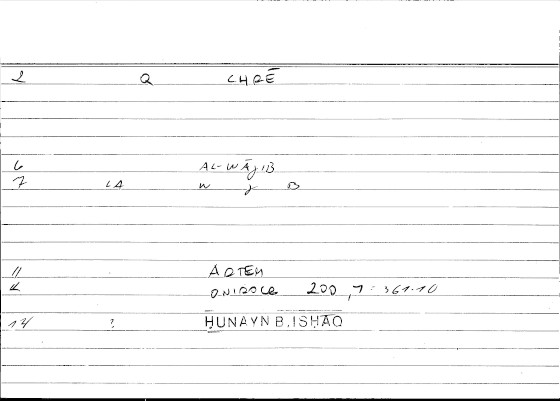 2 Q CHRĒ
6 AL-WĀǧIB
7 LA W ǧ B
11 ARTEM
12 ONIROCR 200,7 = 361.10
14 ? ḤUNAYN B.ISḤĀQ